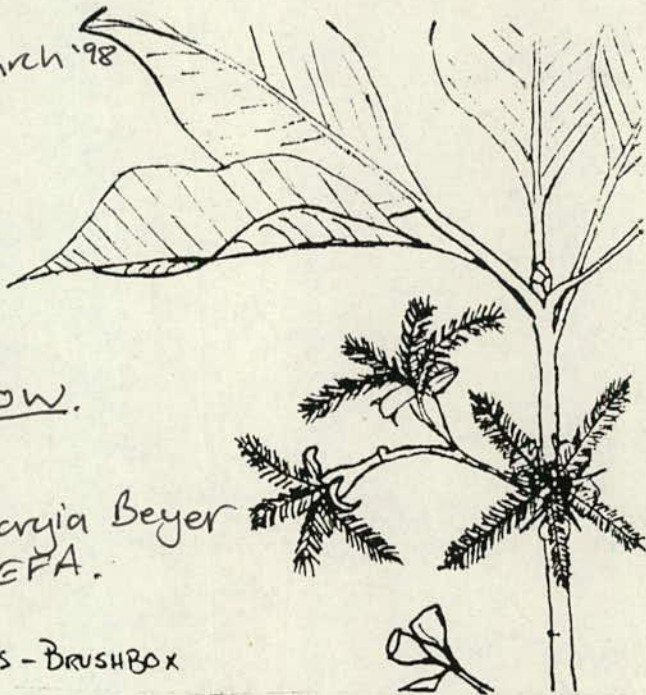 arch '98
ow.
Beyer
EFA.
s - BRUSHBOX